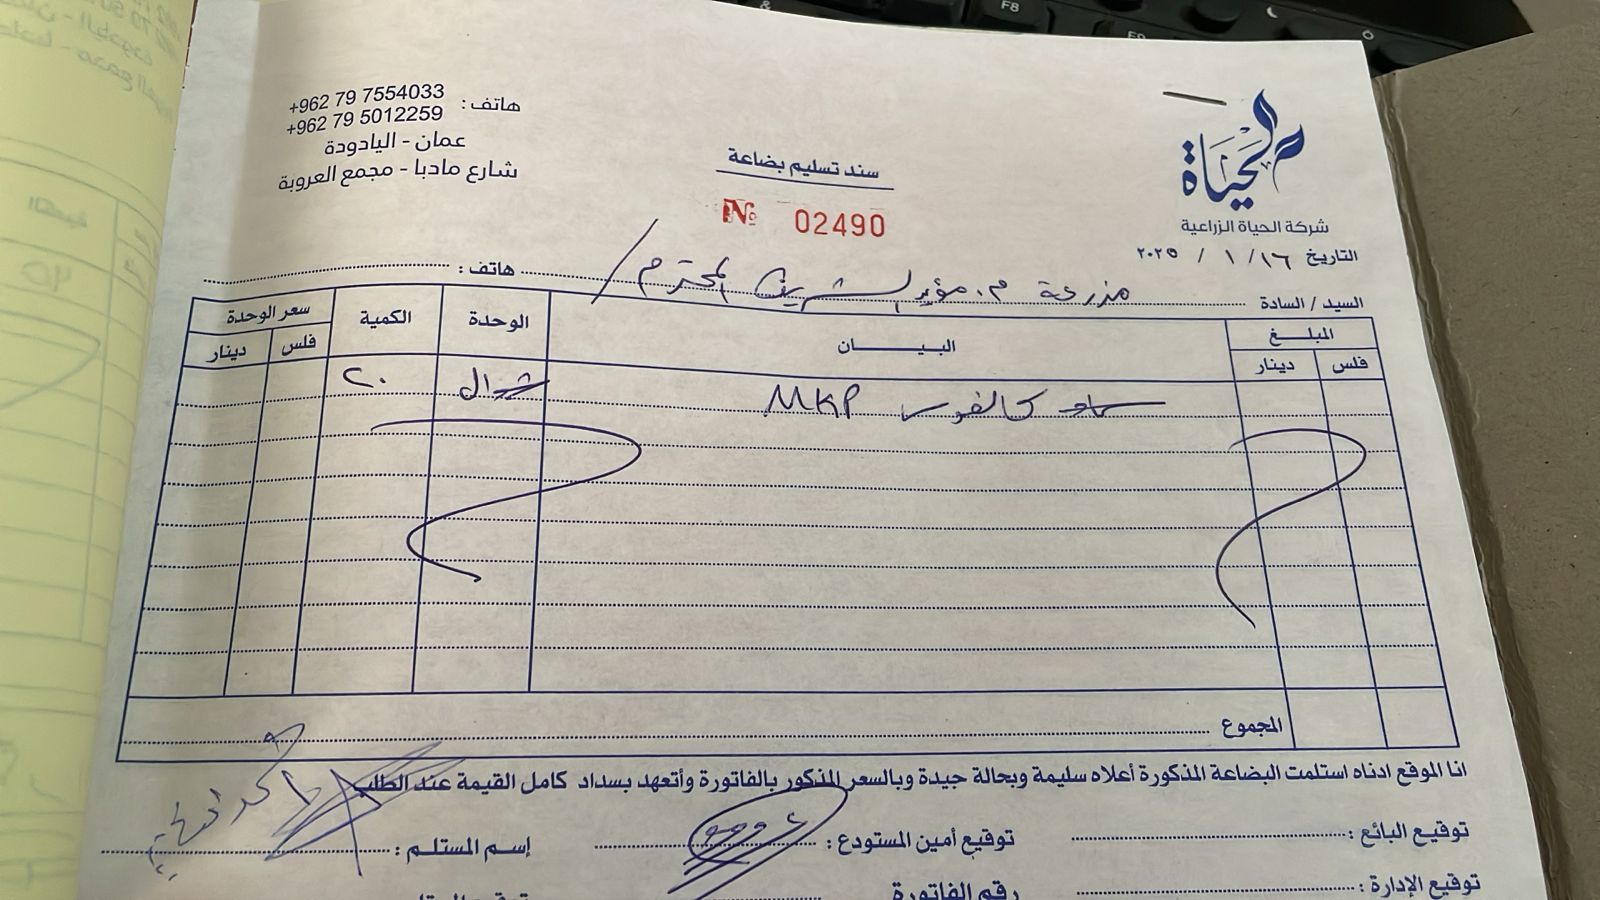 الحياة
شركة الحياة الزراعية
هاتف : +962 79 7554033
+962 79 5012259
عمان - اليادودة
شارع مادبا - مجمع العروبة
سند تسليم بضاعة
№ 02490
التاريخ ١٦ / ١ / ٢٠٢٥
السيد / السادة مزرعة م. مؤيد المحترم / هاتف :
المبلغ البيـــــان الوحدة الكمية سعر الوحدة
فلس دينار فلس دينار
سماد كالفوس MKP شوال ٢٠
المجموع
انا الموقع ادناه استلمت البضاعة المذكورة أعلاه سليمة وبحالة جيدة وبالسعر المذكور بالفاتورة وأتعهد بسداد كامل القيمة عند الطلب
توقيع البائع : توقيع أمين المستودع : إسم المستلم :
توقيع الإدارة : رقم الفاتورة
F8